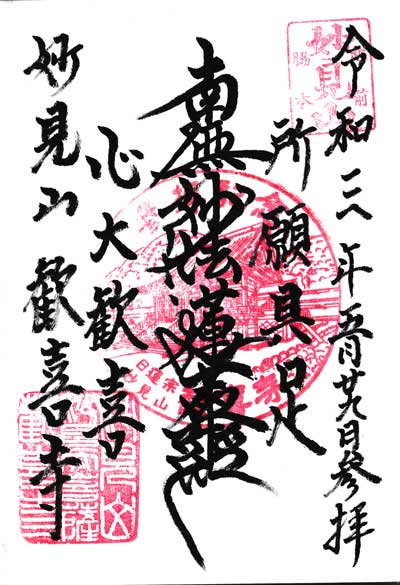 令和年五月廿九日参拝
所願具足
南無妙法蓮華経
心大歓喜
妙見山歓喜寺
妙見
日蓮宗
妙見山